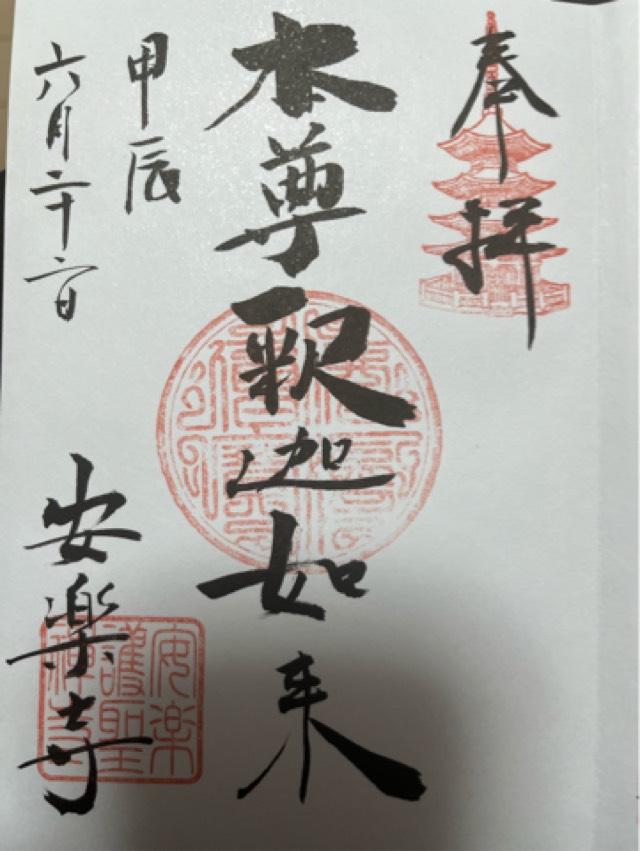 奉拝
本尊釈迦如来
甲辰
六月二十六日
安楽寺
安楽
護聖
禅寺